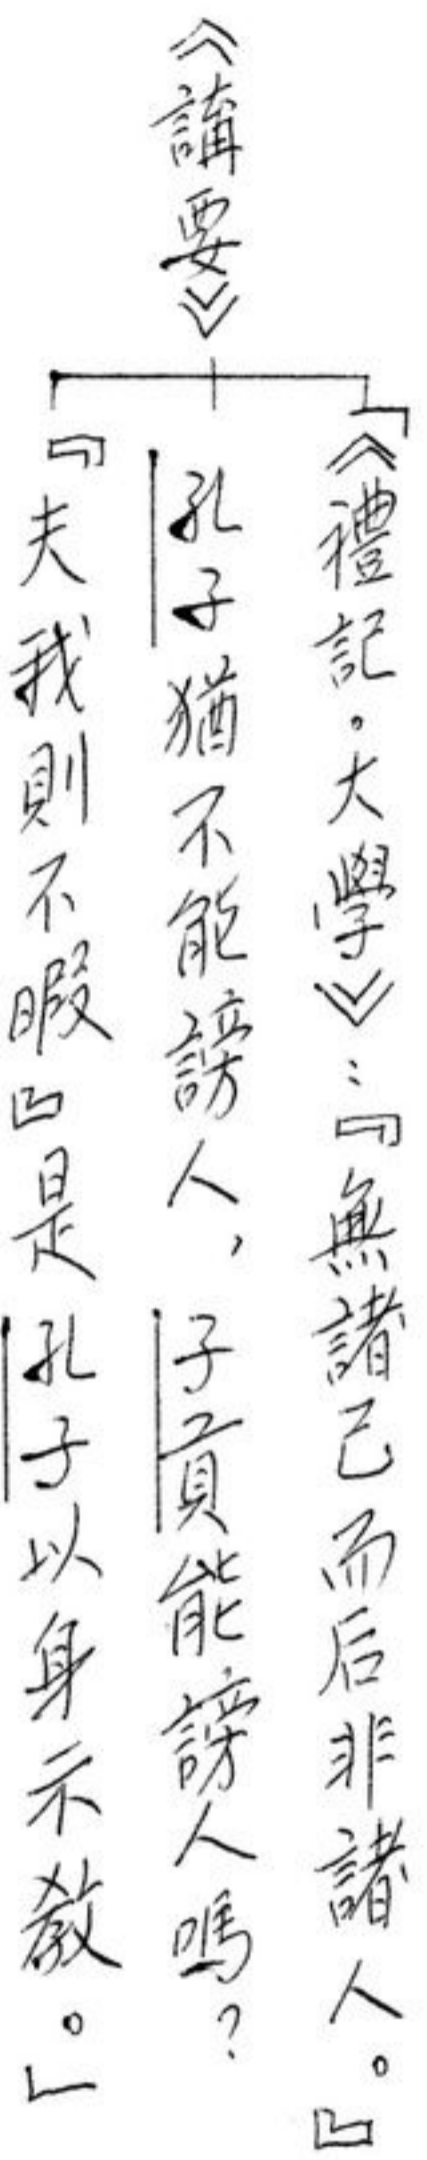 《講要》
「《禮記。大學》：『無諸己而后非諸人。』
孔子猶不能謗人，子貢能謗人嗎？
『夫我則不暇』是孔子以身示教。」